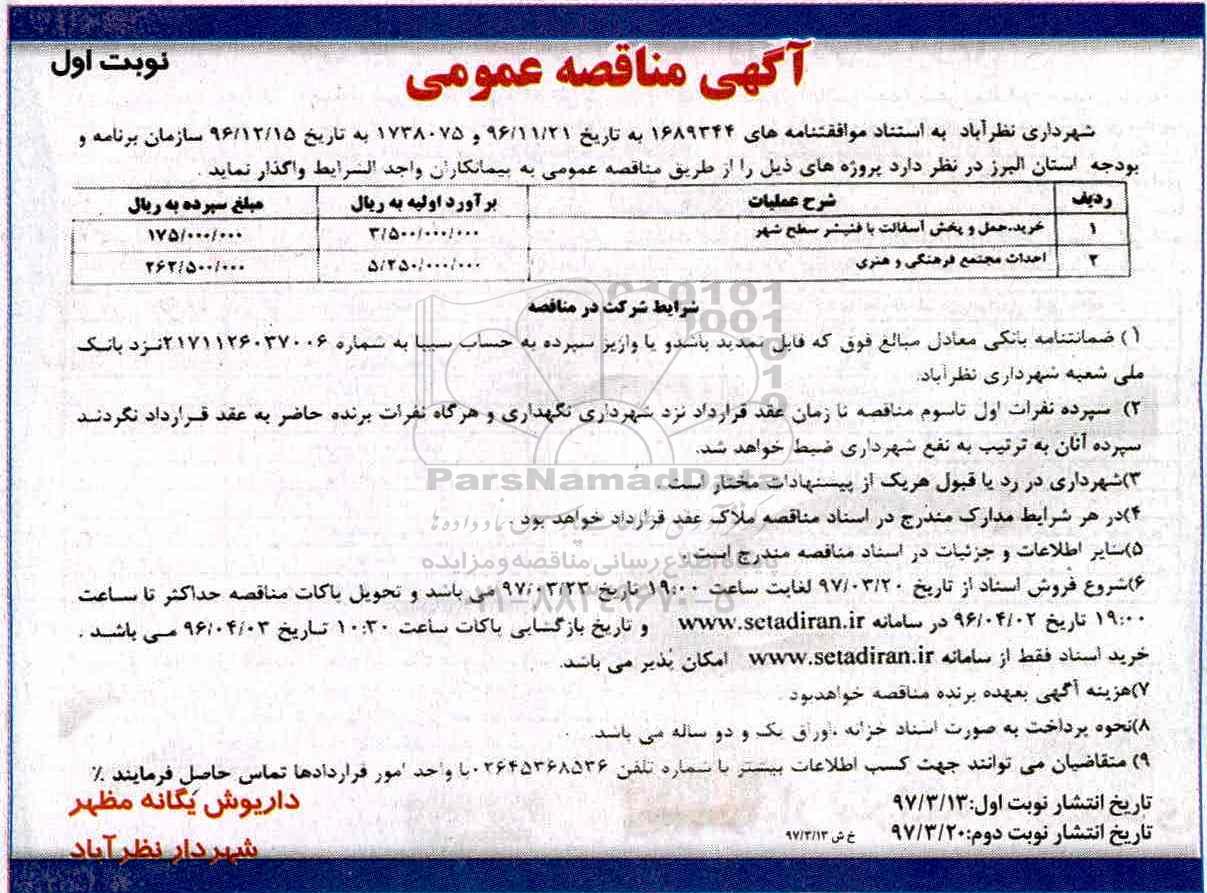 آگهی مناقصه عمومی
نوبت اول
شهرداری نظرآباد به استناد موافقتنامه های ۱۶۸۹۳۴۴ به تاریخ ۹۶/۱۱/۲۱ و ۱۷۳۸۰۷۵ به تاریخ ۹۶/۱۲/۱۵ سازمان برنامه و
بودجه استان البرز در نظر دارد پروژه های ذیل را از طریق مناقصه عمومی به پیمانکاران واجد الشرایط واگذار نماید .
ردیف شرح عملیات برآورد اولیه به ریال مبلغ سپرده به ریال
۱ خرید،حمل و پخش آسفالت با فنیشر سطح شهر ۳/۵۰۰/۰۰۰/۰۰۰ ۱۷۵/۰۰۰/۰۰۰
۲ احداث مجتمع فرهنگی و هنری ۵/۲۵۰/۰۰۰/۰۰۰ ۲۶۲/۵۰۰/۰۰۰
شرایط شرکت در مناقصه
۱) ضمانتنامه بانکی معادل مبالغ فوق که قابل تمدید باشدو یا واریز سپرده به حساب سیبا به شماره ۲۱۷۱۱۲۶۰۳۷۰۰۶نزد بانک
ملی شعبه شهرداری نظرآباد.
۲) سپرده نفرات اول تاسوم مناقصه تا زمان عقد قرارداد نزد شهرداری نگهداری و هرگاه نفرات برنده حاضر به عقد قرارداد نگردند
سپرده آنان به ترتیب به نفع شهرداری ضبط خواهد شد.
۳)شهرداری در رد یا قبول هریک از پیشنهادات مختار است.
۴)در هر شرایط مدارک مندرج در اسناد مناقصه ملاک عقد قرارداد خواهد بود .
۵)سایر اطلاعات و جزئیات در اسناد مناقصه مندرج است .
۶)شروع فروش اسناد از تاریخ ۹۷/۰۳/۲۰ لغایت ساعت ۱۹:۰۰ تاریخ ۹۷/۰۳/۲۳ می باشد و تحویل پاکات مناقصه حداکثر تا ساعت
۱۹:۰۰ تاریخ ۹۶/۰۴/۰۲ در سامانه www.setadiran.ir و تاریخ بازگشایی پاکات ساعت ۱۰:۳۰ تاریخ ۹۶/۰۴/۰۳ می باشد .
خرید اسناد فقط از سامانه www.setadiran.ir امکان پذیر می باشد.
۷)هزینه آگهی بعهده برنده مناقصه خواهدبود .
۸)نحوه پرداخت به صورت اسناد خزانه ،اوراق یک و دو ساله می باشد.
۹) متقاضیان می توانند جهت کسب اطلاعات بیشتر با شماره تلفن ۰۲۶۴۵۳۶۸۵۳۶با واحد امور قراردادها تماس حاصل فرمایند ٪
تاریخ انتشار نوبت اول:۹۷/۳/۱۳
تاریخ انتشار نوبت دوم:۹۷/۳/۲۰
خ ش ۹۷/۳/۱۳
داریوش یگانه مظهر
شهردار نظرآباد
ParsNamadData
پایگاه اطلاع رسانی مناقصه و مزایده